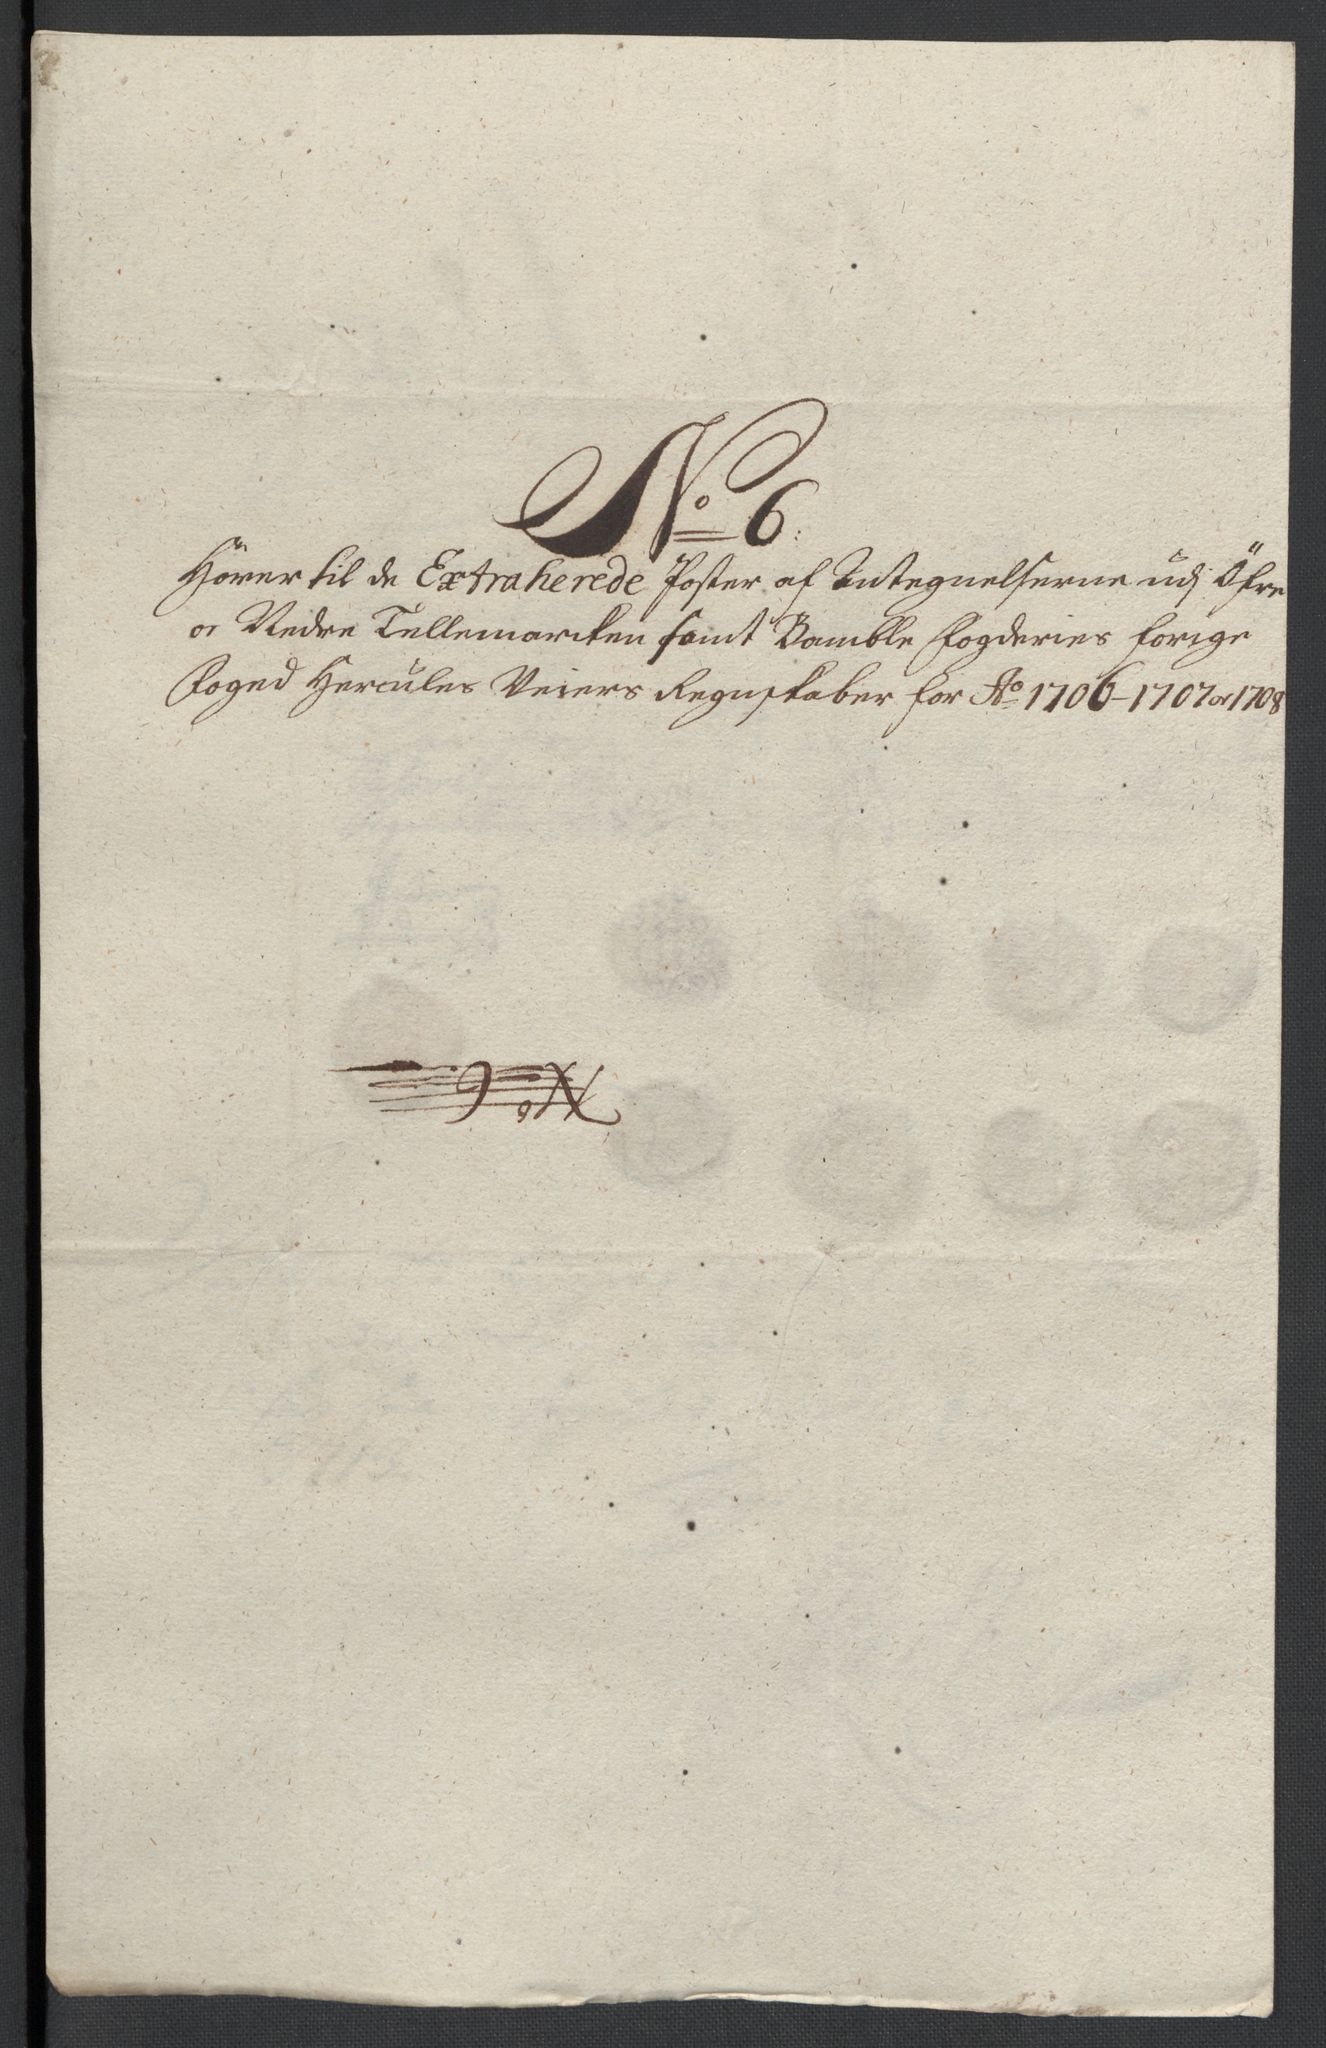 No 6:
Hörer til de Extraherede Poster af Antegnelserne udj Öfre
og Nedre Tellemarcken samt Bamble Fogderies forige
Foged Hercules Weiers Regnskaber for Ao 1706-1707 og 1708
No 9